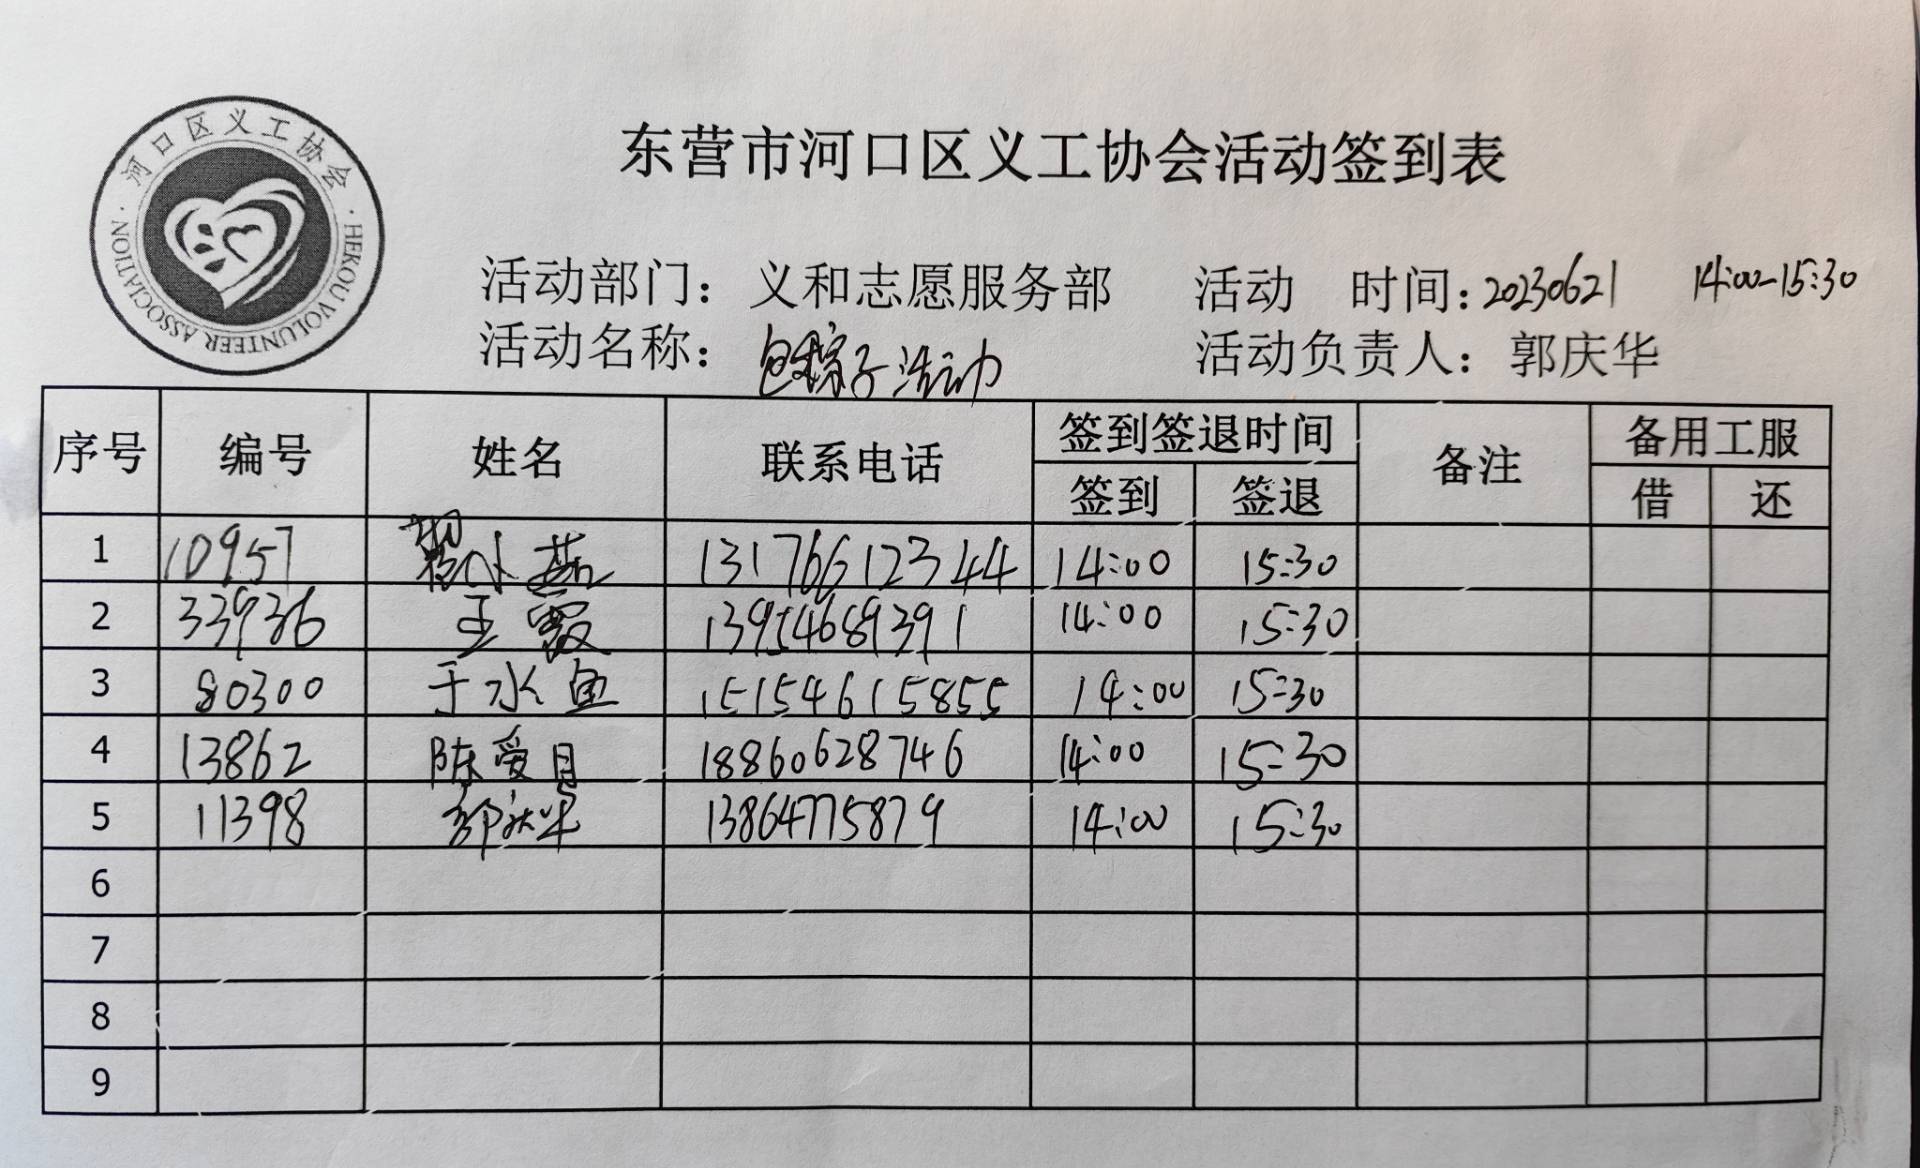 河口区义工协会
HEKOU VOLUNTEER ASSOCIATION
东营市河口区义工协会活动签到表
活动部门：义和志愿服务部 活动 时间：20230621 14:00-15:30
活动名称：包粽子活动 活动负责人：郭庆华
序号 编号 姓名 联系电话 签到签退时间 备注 备用工服
签到 签退 借 还
1 10957 小燕 13176612344 14:00 15:30
2 33936 王霞 13954689391 14:00 15:30
3 80300 于水鱼 15154615855 14:00 15:30
4 13862 陈爱月 18860628746 14:00 15:30
5 11398 13864775879 14:00 15:30
6
7
8
9